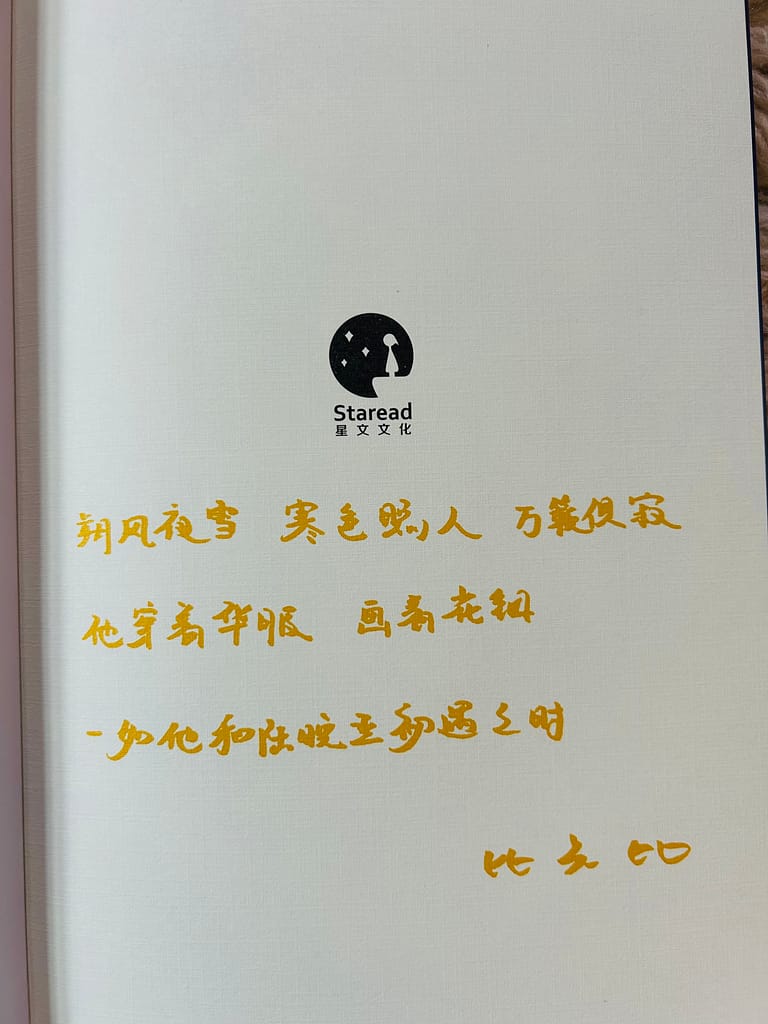 Staread
星文文化
朔风夜雪 寒色照人 万籁俱寂
他穿着华服 画着花钿
一如他和陆晚丞初遇之时
比卡比